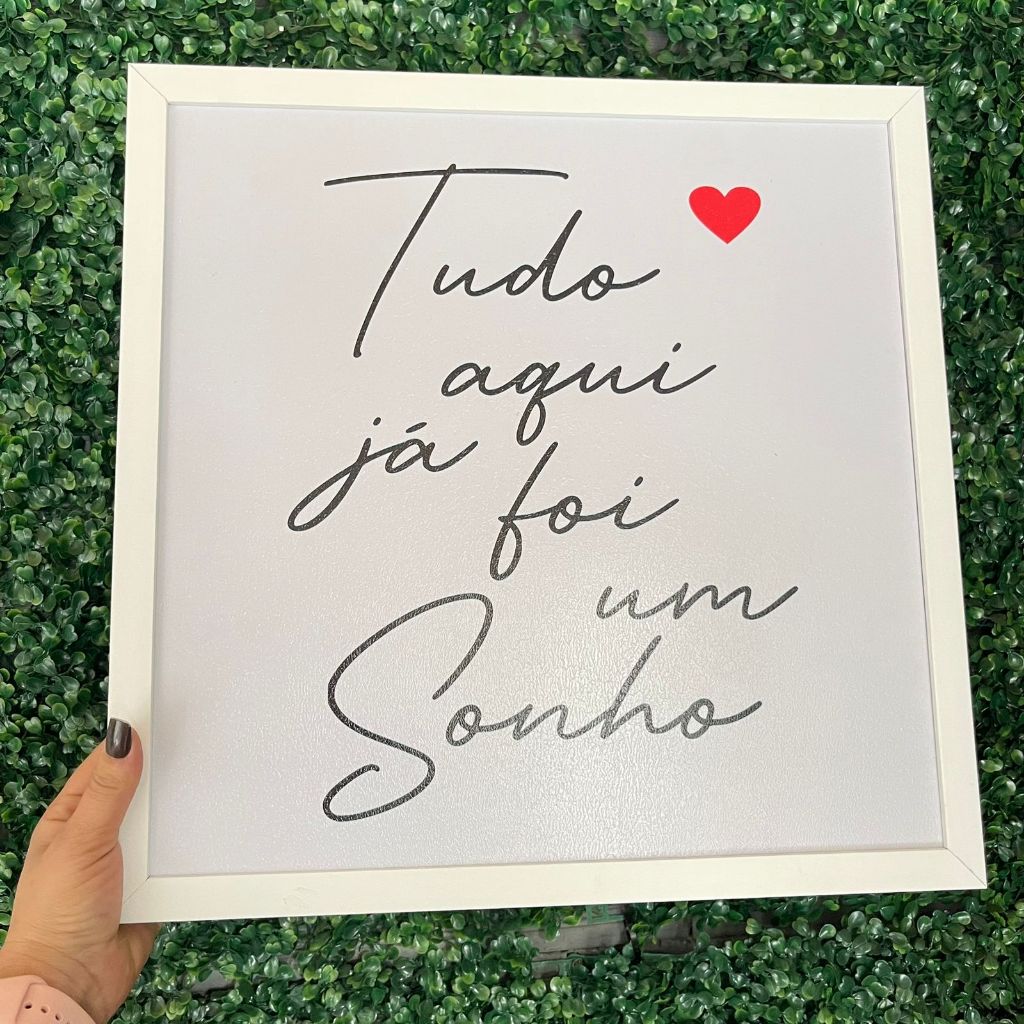 Tudo
aqui
já
foi
um
Sonho